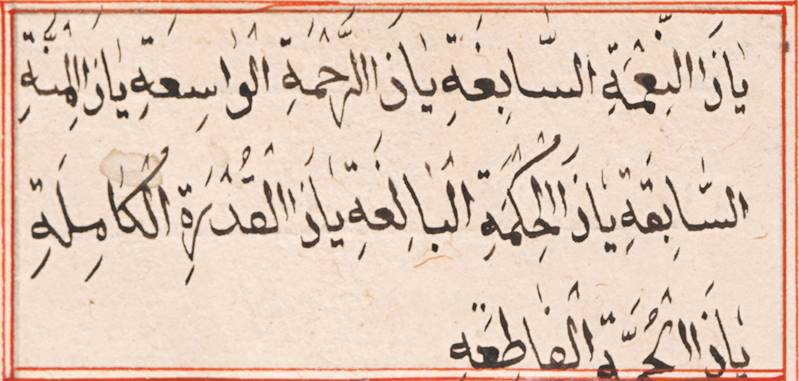 يَاذَا النِّعْمَةِ السَّابِغَةِ يَاذَا الرَّحْمَةِ الْوَاسِعَةِ يَاذَا الْمِنَّةِ
السَّابِقَةِ يَاذَا الْحِكْمَةِ الْبَالِغَةِ يَاذَا الْقُدْرَةِ الْكَامِلَةِ
يَاذَا الْحُجَّةِ الْقَاطِعَةِ